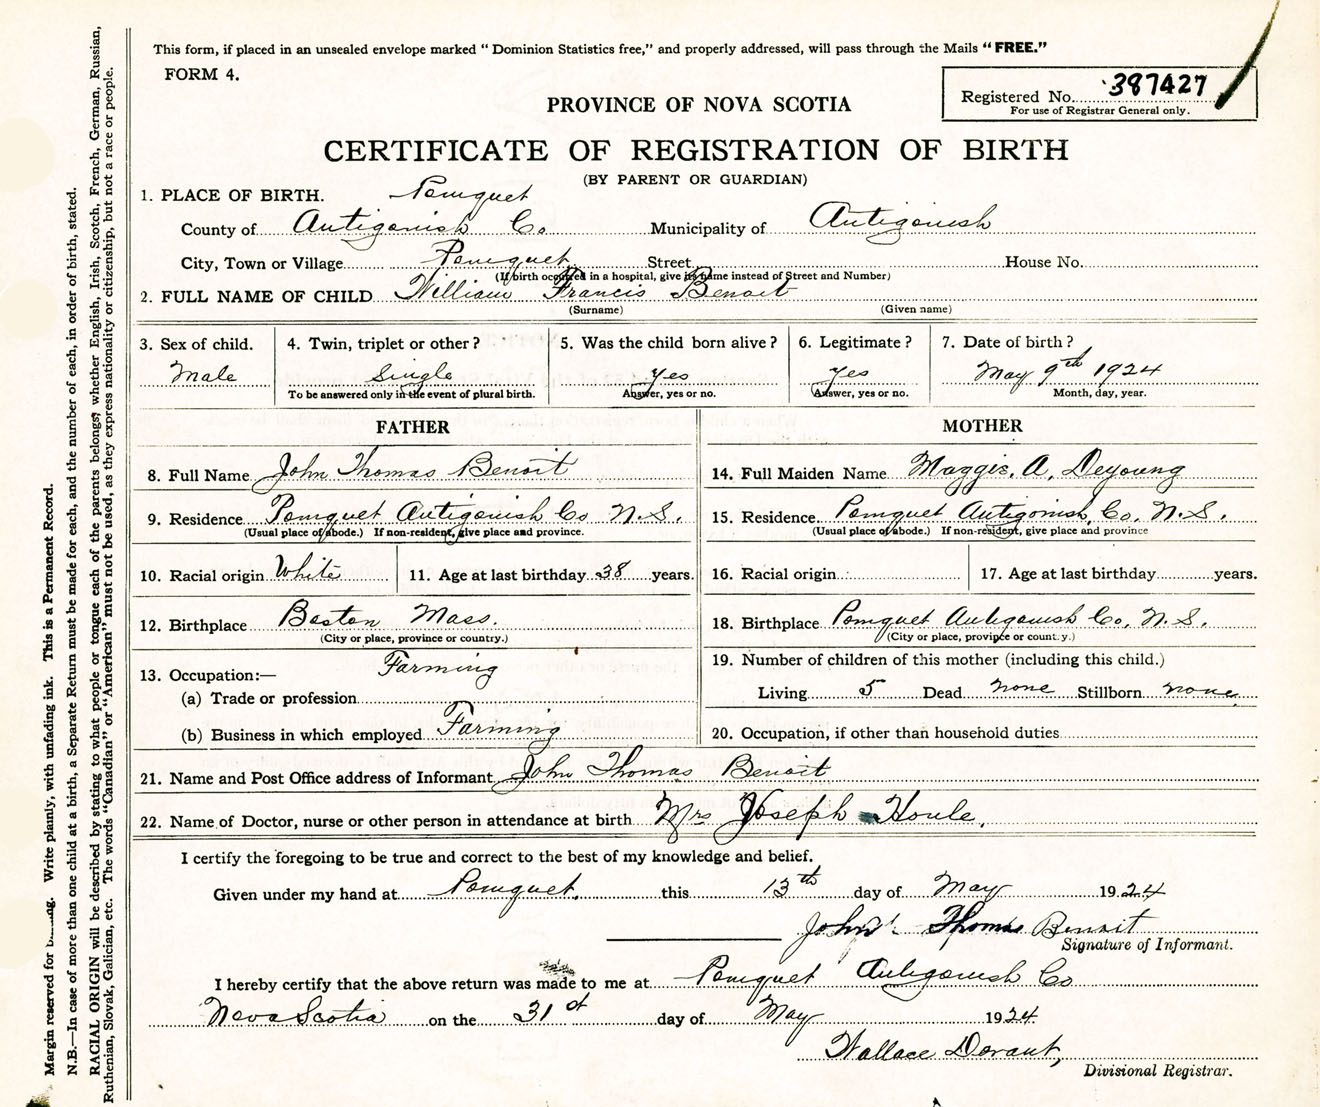 This form, if placed in an unsealed envelope marked “ Dominion Statistics free,” and properly addressed, will pass through the Mails “FREE.”
FORM 4.
Registered No. 387427
For use of Registrar General only.
PROVINCE OF NOVA SCOTIA
CERTIFICATE OF REGISTRATION OF BIRTH
(BY PARENT OR GUARDIAN)
1. PLACE OF BIRTH. Pomquet
County of Antigonish Co Municipality of Antigonish
City, Town or Village Pomquet Street House No.
(If birth occurred in a hospital, give its name instead of Street and Number)
2. FULL NAME OF CHILD William Francis Benoit
(Surname) (Given name)
3. Sex of child. 4. Twin, triplet or other? 5. Was the child born alive? 6. Legitimate? 7. Date of birth?
Male Single yes yes May 9th 1924
To be answered only in the event of plural birth. Answer, yes or no. Answer, yes or no. Month, day, year.
FATHER MOTHER
8. Full Name John Thomas Benoit 14. Full Maiden Name Maggie. A. Deyoung
9. Residence Pomquet Antigonish Co N.S. 15. Residence Pomquet Antigonish, Co, N.S.
(Usual place of abode.) If non-resident, give place and province. (Usual place of abode.) If non-resident, give place and province
10. Racial origin White 11. Age at last birthday 38 years. 16. Racial origin 17. Age at last birthday years.
12. Birthplace Boston Mass. 18. Birthplace Pomquet Antigonish Co, N.S.
(City or place, province or country.) (City or place, province or country.)
13. Occupation:— Farming 19. Number of children of this mother (including this child.)
(a) Trade or profession Living 5 Dead none Stillborn none
(b) Business in which employed Farming 20. Occupation, if other than household duties
21. Name and Post Office address of Informant John Thomas Benoit
22. Name of Doctor, nurse or other person in attendance at birth Mrs Joseph Houle.
I certify the foregoing to be true and correct to the best of my knowledge and belief.
Given under my hand at Pomquet. this 13th day of May 1924
John Thomas Benoit
Signature of Informant.
I hereby certify that the above return was made to me at Pomquet Antigonish Co
Nova Scotia on the 31st day of May 1924
Wallace Dorant,
Divisional Registrar.
Margin reserved for Write plainly, with unfading ink. This is a Permanent Record.
N.B.—In case of more than one child at a birth, a Separate Return must be made for each, and the number of each, in order of birth, stated.
RACIAL ORIGIN will be described by stating to what people or tongue each of the parents belongs, whether English, Irish, Scotch, French, German, Russian,
Ruthenian, Slovak, Galician, etc. The words “Canadian” or “American” must not be used, as they express nationality or citizenship, but not a race or people.